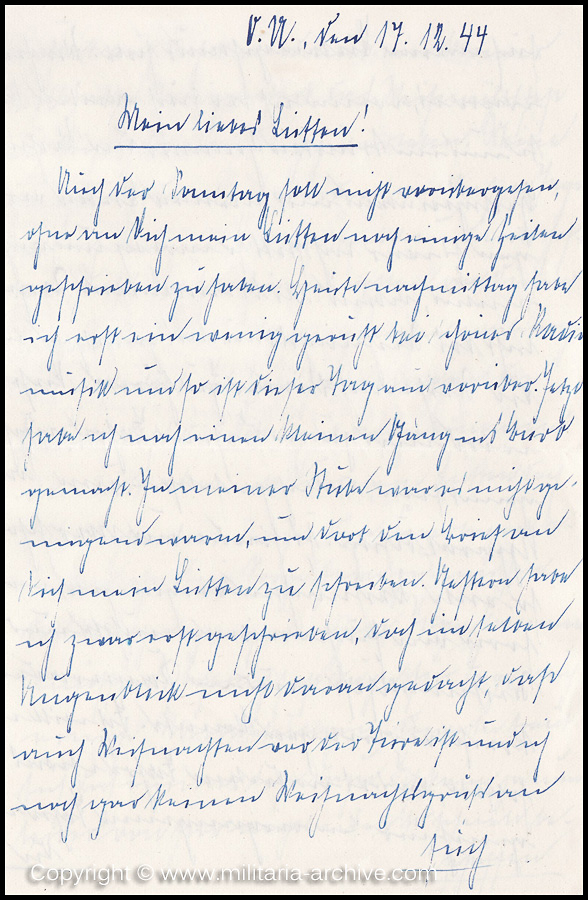 O.U., den 17.12.44
Mein liebes Lütten!
Auch der Sonntag soll nicht vorübergehen,
ohne an Dich mein Lütten noch einige Zeilen
geschrieben zu haben. Heute nachmittag habe
ich erst ein wenig geruht bei schöner Radio
musik und so ist dieser Tag nun vorüber. Jetzt
habe ich noch einen kleinen Gang ins
gemacht. In meiner Stube war es nicht ge-
nügend warm, und dort den Brief an
Dich mein Lütten zu schreiben. Gestern habe
ich zwar erst geschrieben, doch im selben
Augenblick nicht daran gedacht, daß
auch Weihnachten vor der Türe ist und ich
noch gar keinen Weihnachtsgruß an
Euch
Copyright © www.militaria-archive.com